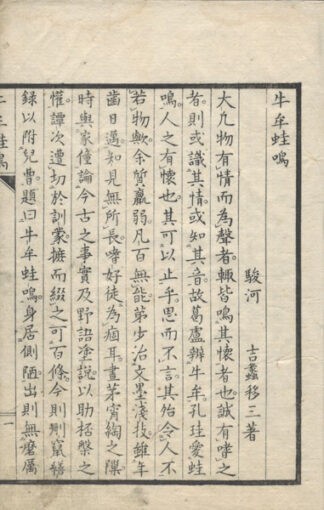 牛牟蛙鳴
駿河 吉蠡移三著
大凡物有情而為聲者輙皆鳴其懷者也誠有哮之
者則或識其情或知其音故葛盧辨牛牟孔珪愛蛙
鳴人之有懷也其可以止乎思而不言其殆令人不
若物歟余質羸弱凡百無能第少治文墨淺技雖年
齒日邁知見無所長嗜好徒為痼耳晝茅宵綯之隟
時與家僮論今古之事實及野語塗說以助桮槃之
懽譚次遭切於訓蒙摭而綴之可百條今則刪竄繕
錄以附兒曹題曰牛牟蛙鳴身居側陋出則無磨厲
牛牟蛙鳴
一